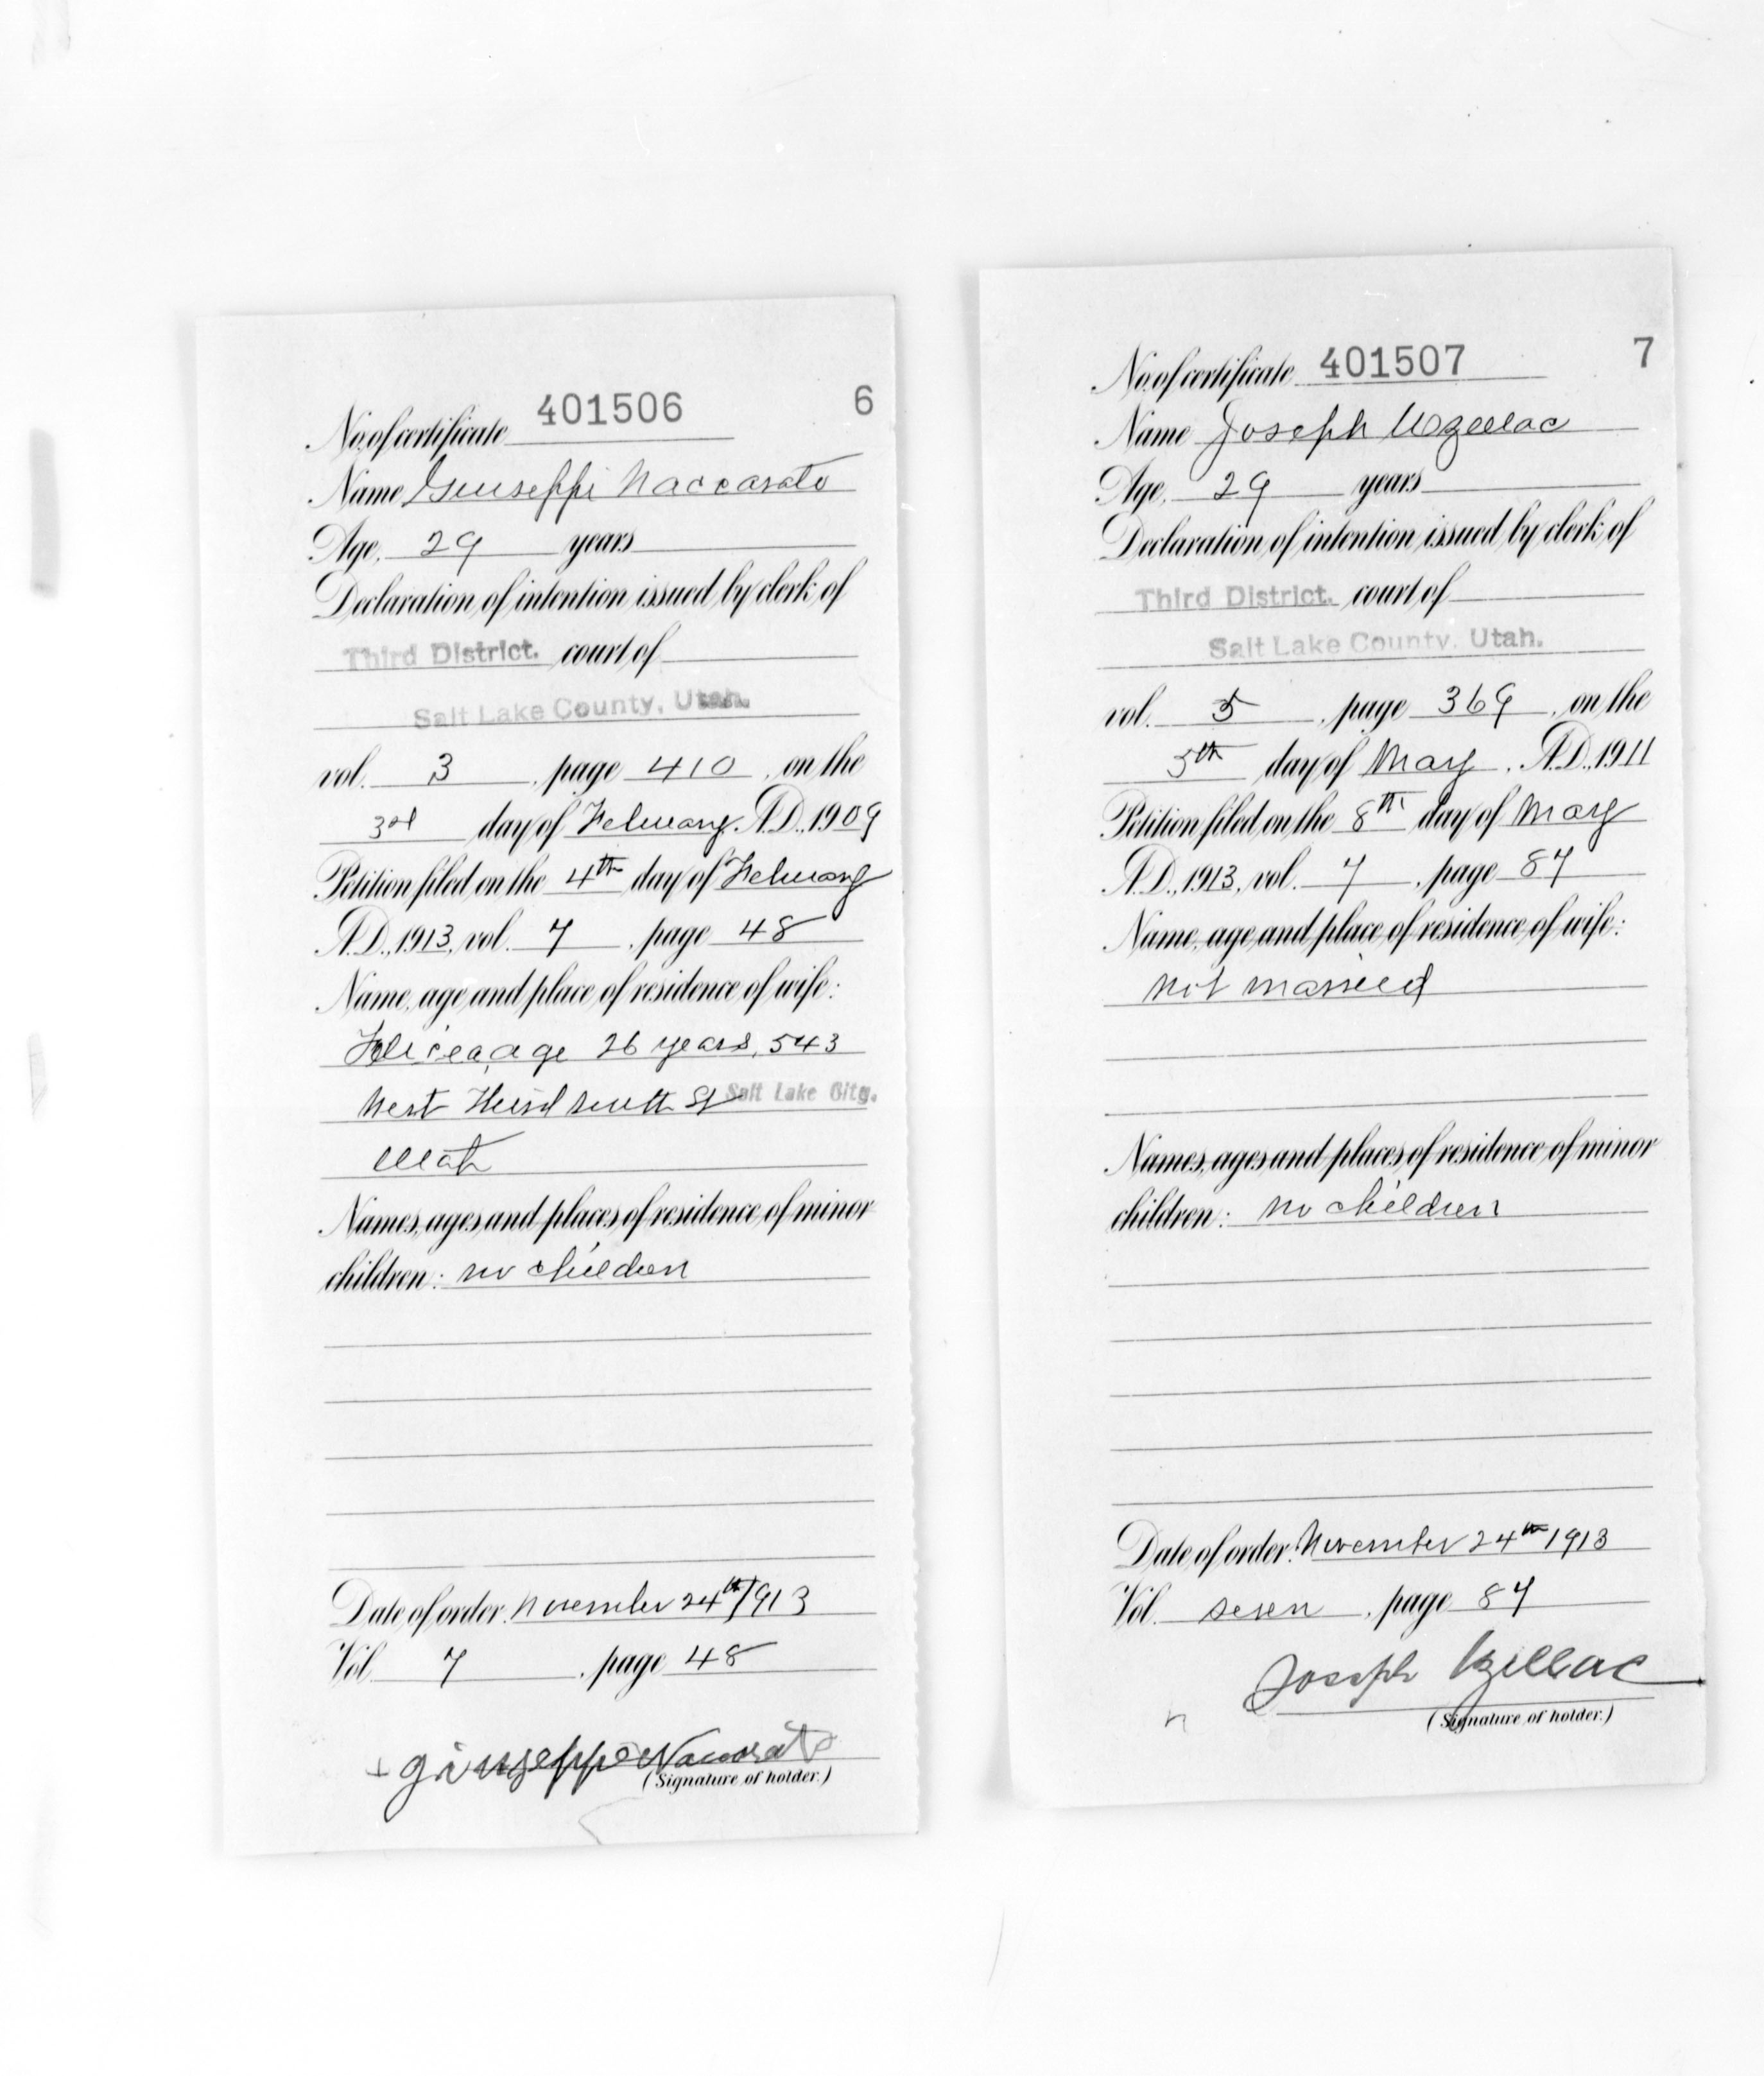 401506 6
No. of certificate
Name Giuseppi Naccarato
Age, 29 years
Declaration of intention issued by clerk of
Third District. court of
Salt Lake County, Utah.
vol. 3, page 410, on the
3rd day of February A.D., 1909
Petition filed on the 4th day of February
A.D., 1913, vol. 7, page 48
Name, age and place of residence of wife:
Felicea, age 26 years, 543
West Third South St Salt Lake City.
Utah
Names, ages and places of residence of minor
children: no children
Date of order November 24th 1913
Vol. 7, page 48
giuseppe Naccarato
(Signature of holder.)
No. of certificate 401507 7
Name Joseph Uzelac
Age, 29 years
Declaration of intention issued by clerk of
Third District. court of
Salt Lake County, Utah.
vol. 5, page 369, on the
5th day of May, A.D., 1911
Petition filed on the 8th day of May
A.D., 1913, vol. 7, page 87
Name, age and place of residence of wife:
not married
Names, ages and places of residence of minor
children: no children
Date of order: November 24th 1913
Vol. seven, page 87
Joseph
(Signature of holder.)